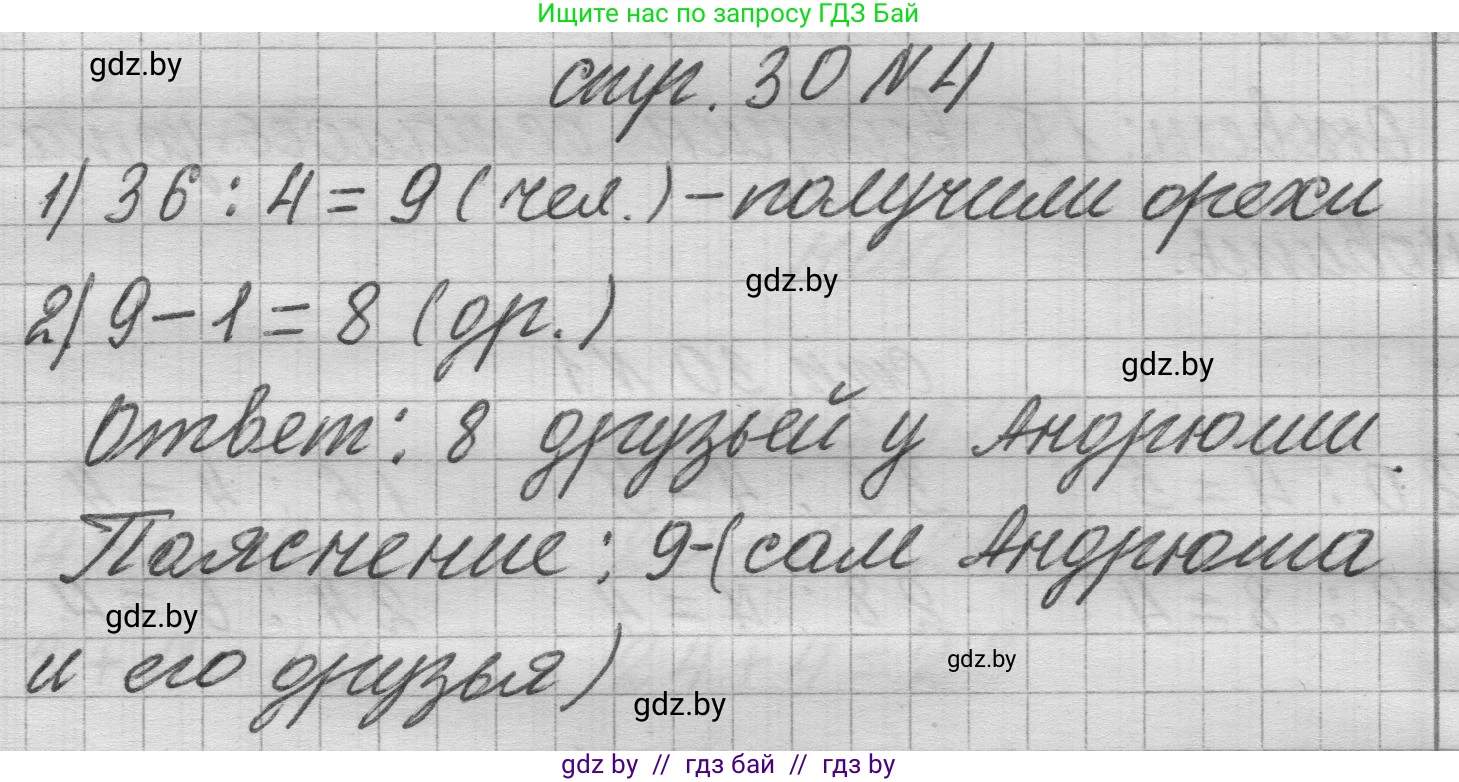 Ищите нас по запросу ГДЗ Бай
gdz.by
стр. 30 №4
1) 36 : 4 = 9 (чел.) – получили орехи
gdz.by
2) 9 – 1 = 8 (др.)
gdz.by
Ответ: 8 друзей у Андрюши.
Пояснение: 9-(сам Андрюша
gdz.by
и его друзья)
gdz.by
gdz.by
gdz by // гдз бай // гдз by